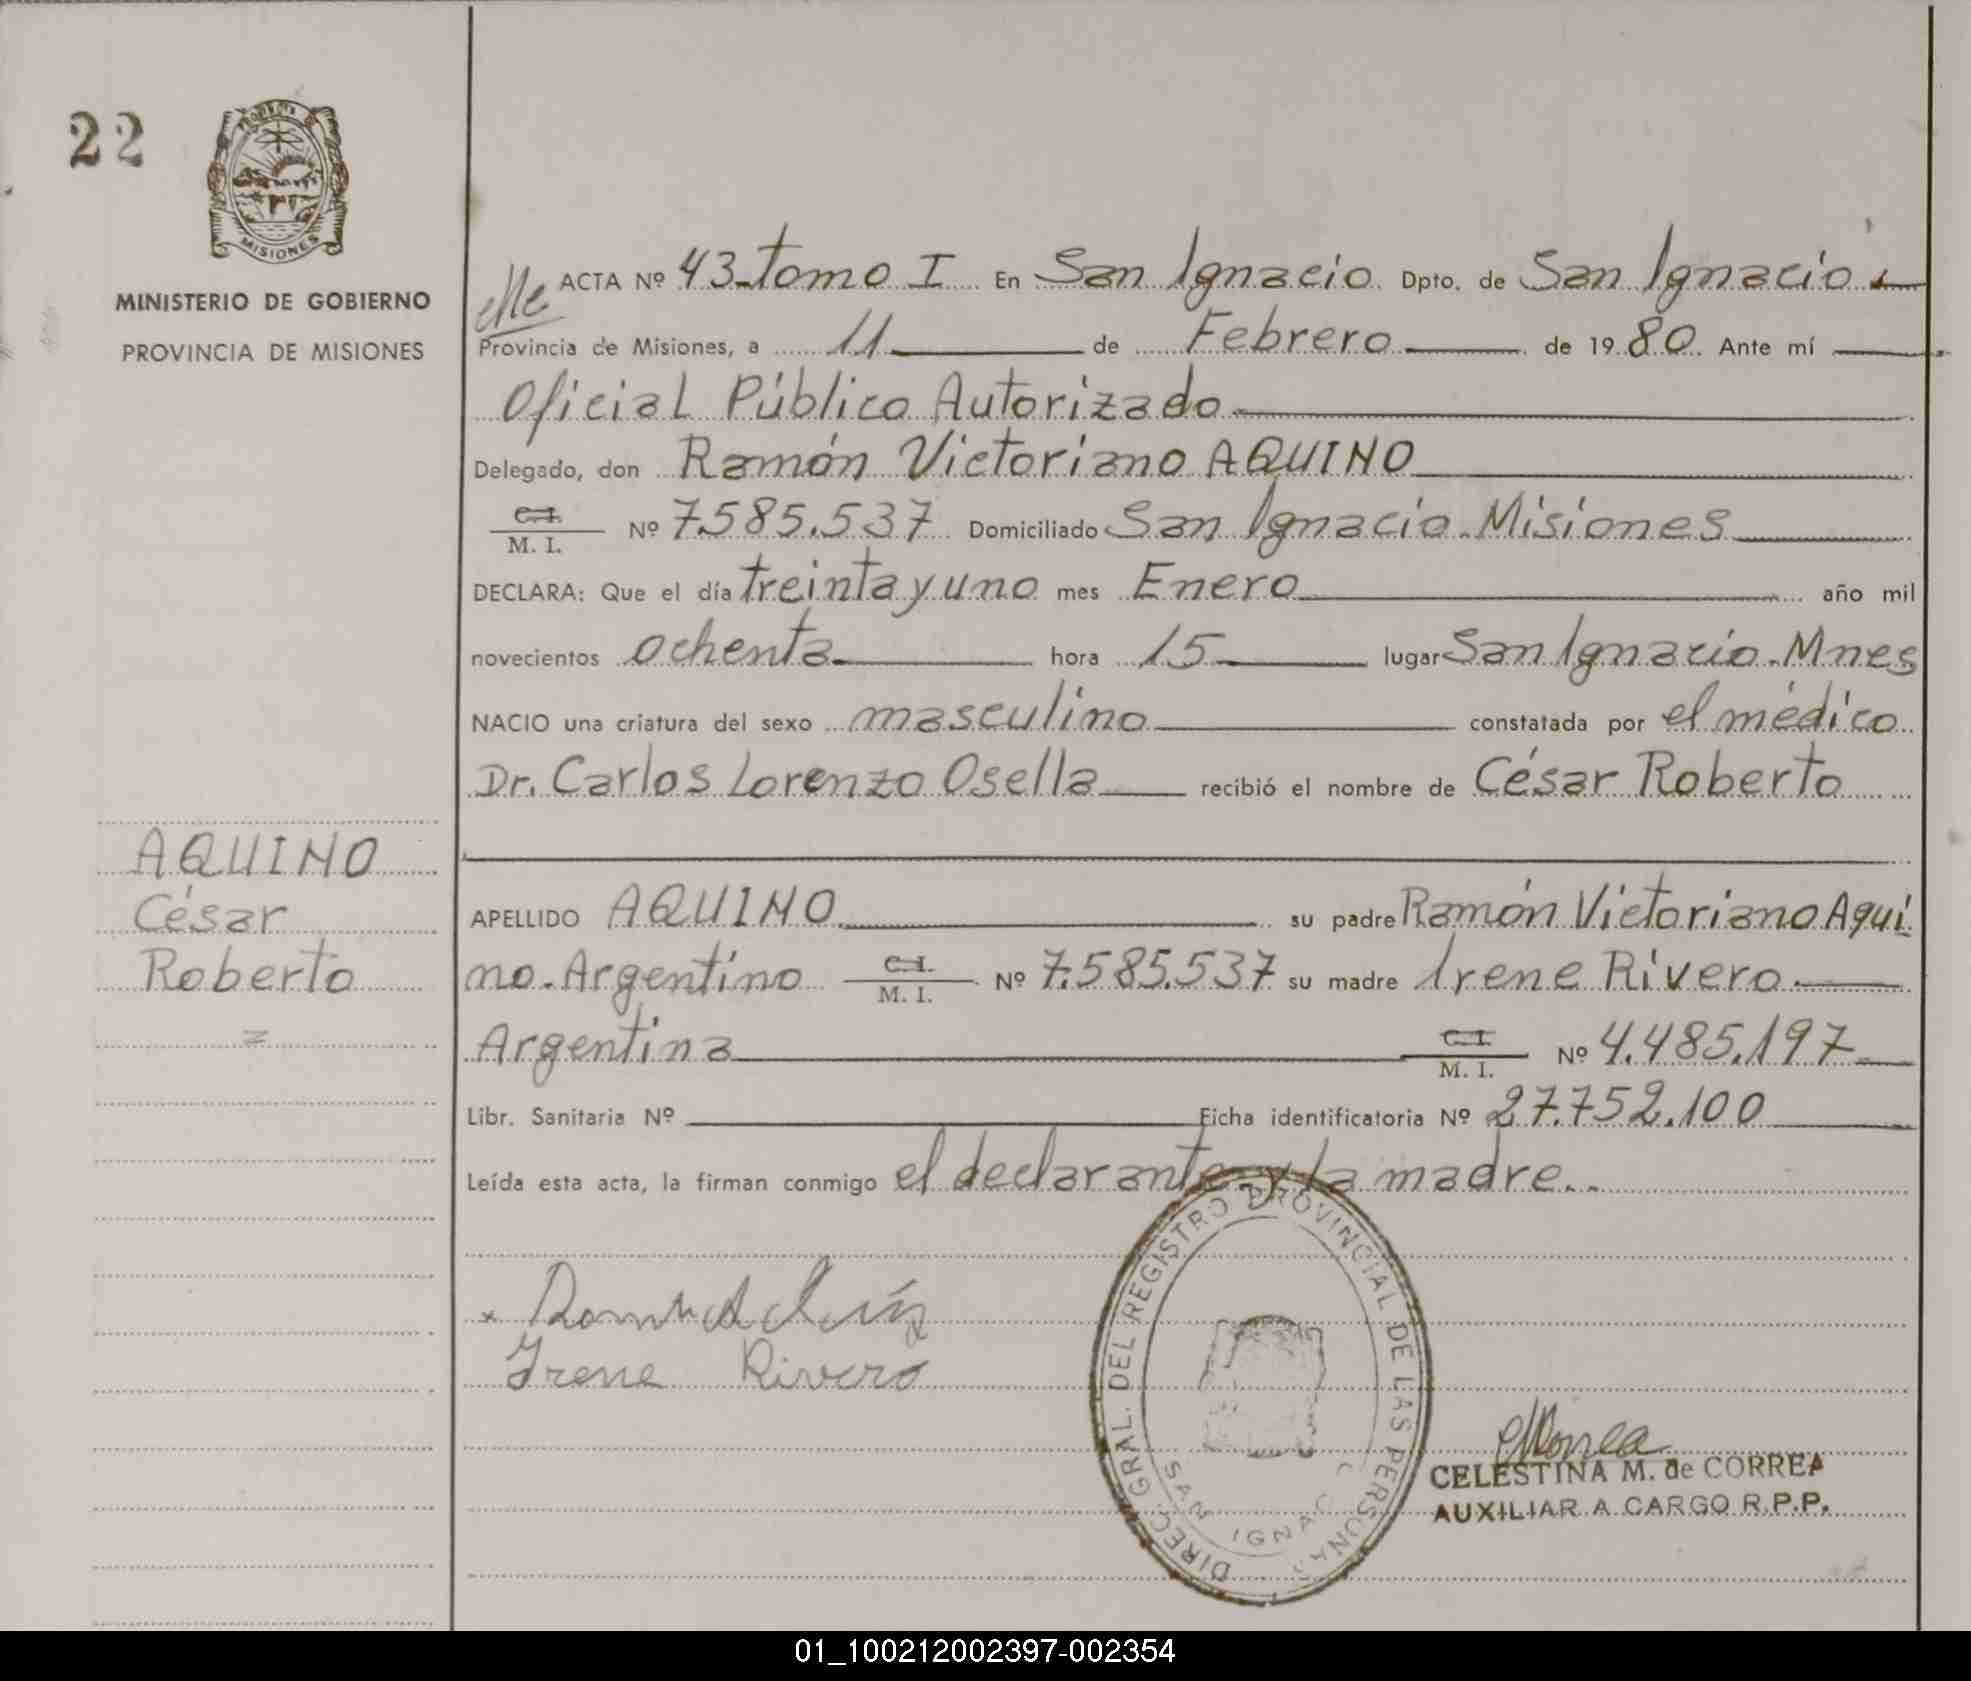 22
PROVINCIA DE
MISIONES
MINISTERIO DE GOBIERNO
PROVINCIA DE MISIONES
AQUINO
César
Roberto
=
ACTA Nº 43-tomo I En San Ignacio Dpto. de San Ignacio
Provincia de Misiones, a 11 de Febrero de 1980 Ante mí
Oficial Público Autorizado
Delegado, don Ramón Victoriano AQUINO
C.I.
M. I. Nº 7.585.537 Domiciliado San Ignacio. Misiones
DECLARA: Que el día treinta y uno mes Enero año mil
novecientos ochenta hora 15 lugar San Ignacio. Mnes
NACIO una criatura del sexo masculino constatada por el médico
Dr. Carlos Lorenzo Osella recibió el nombre de César Roberto
APELLIDO AQUINO su padre Ramón Victoriano Aqui
no. Argentino C.I. M. I. Nº 7.585.537 su madre Irene Rivero
Argentina C.I. M. I. Nº 4.485.197
Libr. Sanitaria Nº Ficha identificatoria Nº 27.752.100
Leída esta acta, la firman conmigo el declarante y la madre..
Irene Rivero
DIREC. GRAL. DEL REGISTRO PROVINCIAL DE LAS PERSONAS
SAN IGNACIO
CELESTINA M. de CORREA
AUXILIAR A CARGO R.P.P.
01_100212002397-002354